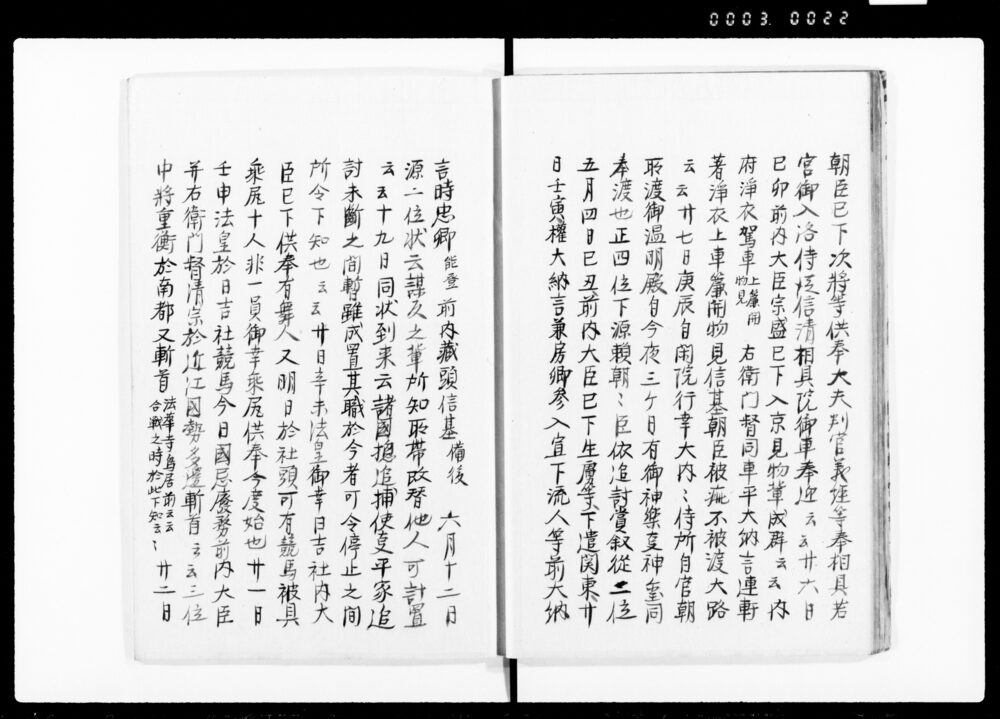 0003 0022
朝臣已下次將等供奉大夫判官義経等奉相具若
宮御入洛侍従信清相具院御車奉迎云云廿六日
己卯前内大臣宗盛已下入京見物輩成群云云内
府淨衣駕車上簾開物見右衛門督同車平大納言連軒
著淨衣上車簾開物見信基朝臣被疵不被渡大路
云云廿七日庚辰自閑院行幸大内〻侍所自官朝
所渡御温明殿自今夜三ケ日有御神樂事神璽同
奉渡也正四位下源頼朝〻臣依追討賞叙從二位
五月四日己丑前内大臣已下生虜等下遣関東廿
日壬寅權大納言兼房卿参入宣下流人等前大納
言時忠卿能登前内藏頭信基備後六月十二日
源二位状云謀反之輩所知所帯改替他人可計置
云云十九日同状到来云諸國摠追捕使事平家追
討未斷之間暫雖成置其職於今者可令停止之間
所令下知也云云廿日辛未法皇御幸日吉社内大
臣已下供奉有舞人又明日於社頭可有競馬被具
乗尻十人非一員御幸乗尻供奉今度始也廿一日
壬申法皇於日吉社競馬今日國忌廢務前内大臣
并右衛門督清宗於近江國勢多邊斬首云云三位
中將重衡於南都又斬首法華寺鳥居前云云合戰之時於此下知云〻廿二日